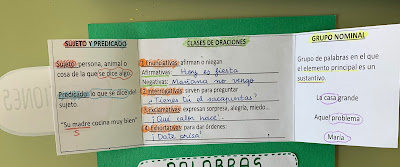 SUJETO Y PREDICADO
Sujeto: persona, animal o
cosa de la que se dice algo.
Predicado: lo que se dice del
sujeto.
"Su madre cocina muy bien"
S
CLASES DE ORACIONES
1. Enunciativas: afirman o niegan
Afirmativas: Hoy es fiesta
Negativas: Mañana no vengo
2. Interrogativas: sirven para preguntar
¿Tienes tú el sacapuntas?
3. Exclamativas: expresan sorpresa, alegría, miedo...
¡Qué calor hace!
4. Exhortativas: para dar órdenes:
¡Date prisa!
GRUPO NOMINAL
Grupo de palabras en el que
el elemento principal es un
sustantivo.
La casa grande
Aquel problema
María
PALABRAS